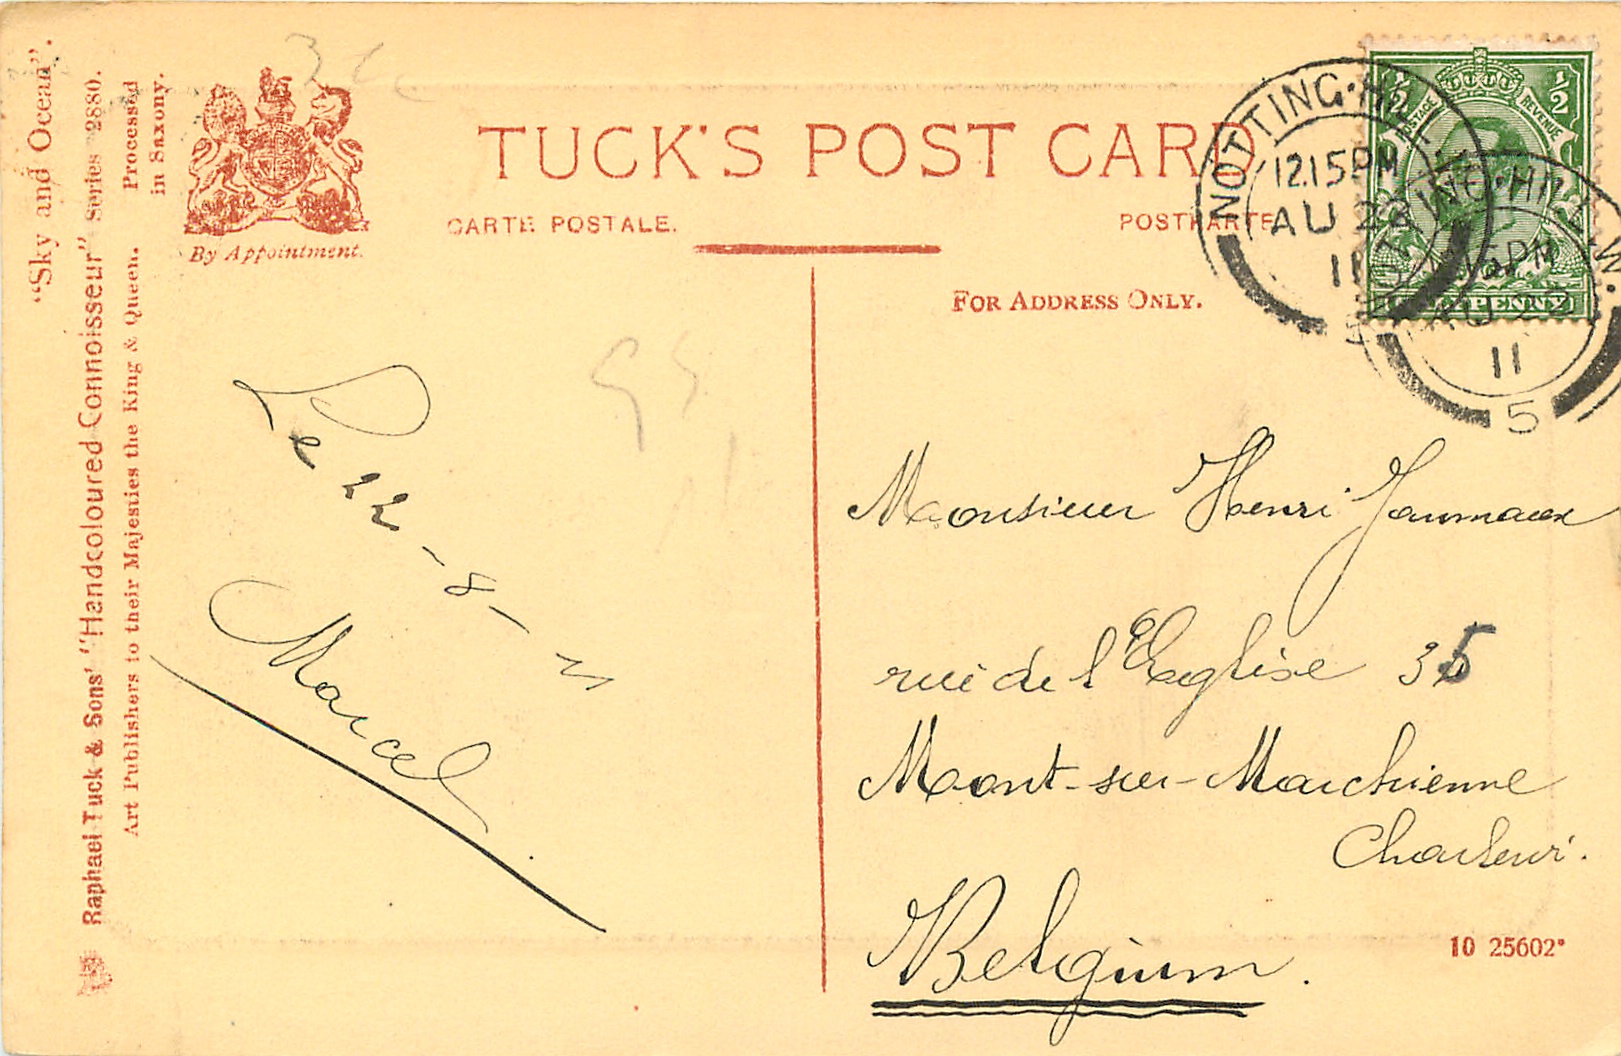 "Sky and Ocean".
Raphael Tuck & Sons' "Handcoloured Connoisseur" Series 2880.
Art Publishers to their Majesties the King & Queen.
Processed
in Saxony.
By Appointment.
TUCK'S POST CARD
CARTE POSTALE.
POSTKARTE
FOR ADDRESS ONLY.
NOTTING·HILL·W.
12.15PM
AU 22
11
5
NOTTING·HILL·W.
15PM
AU 22
11
5
1/2
1/2
POSTAGE
REVENUE
HALFPENNY
Le 22-8-11
Marcel
Monsieur Henri
rue de l'Eglise 35
Mont-sur-Marchienne
Charleroi.
Belgium.
10 25602*